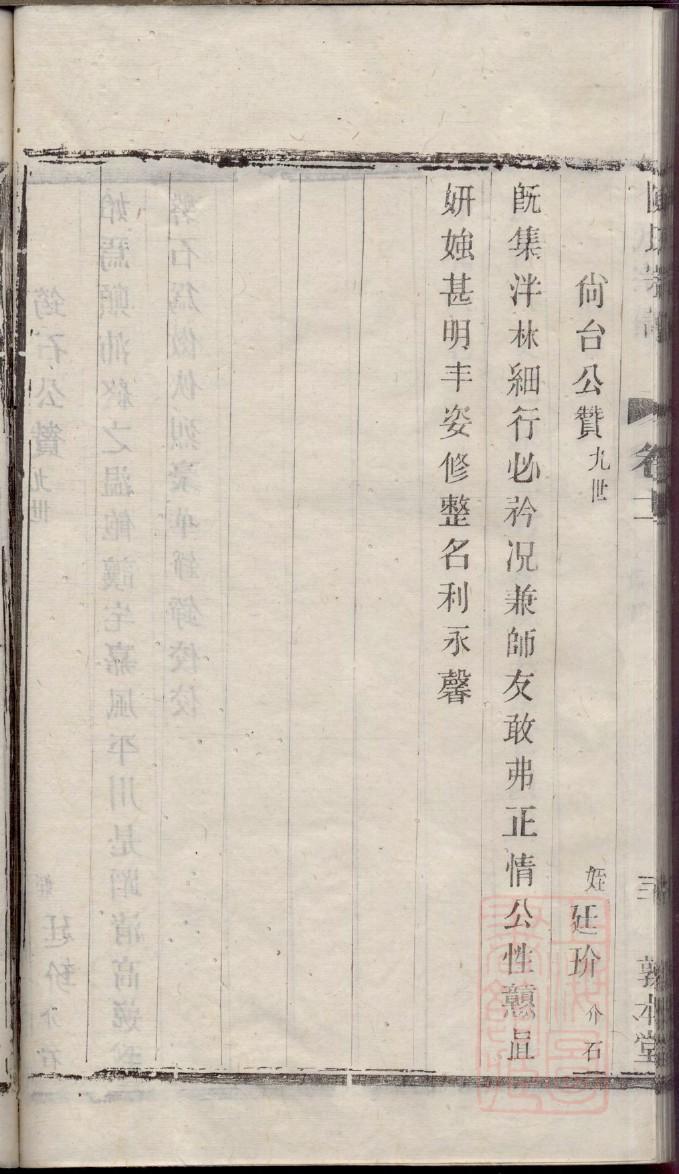 尙台公贊 九世
姪 廷玠 介石
旣集泮林細行必矜况兼師友敢弗正情公性慤
妍媸甚明丰姿修整名利永馨
卷
敦本堂